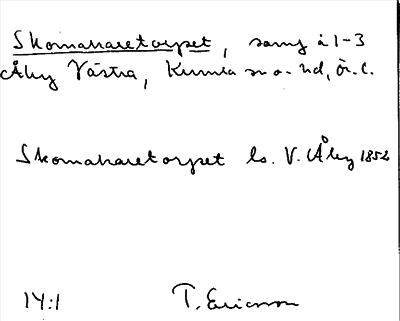 Skomakaretorpet, samf å 1-3
Åby Västra, Kumla sn o. hd, Ör. l.
Skomakaretorpet ls. V. Åby 1852
14:1 T. Ericsson